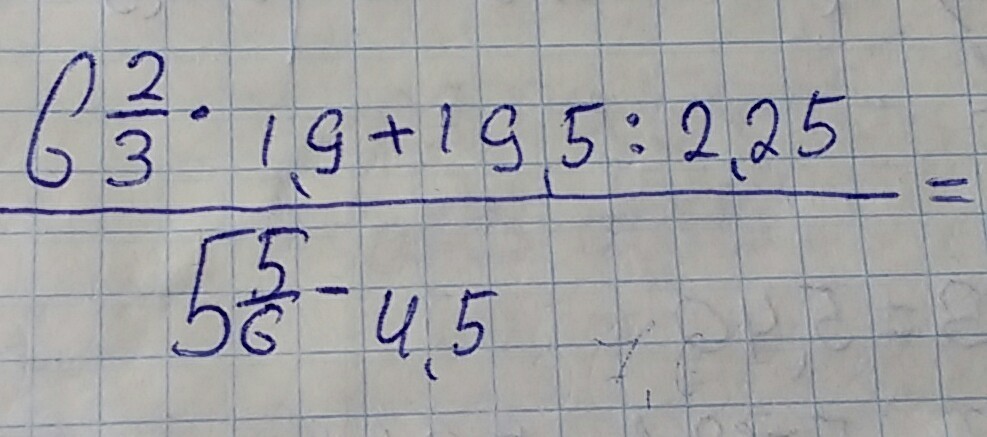 6 2/3 · 1,9 + 19,5 : 2,25 =
5 5/6 - 4,5